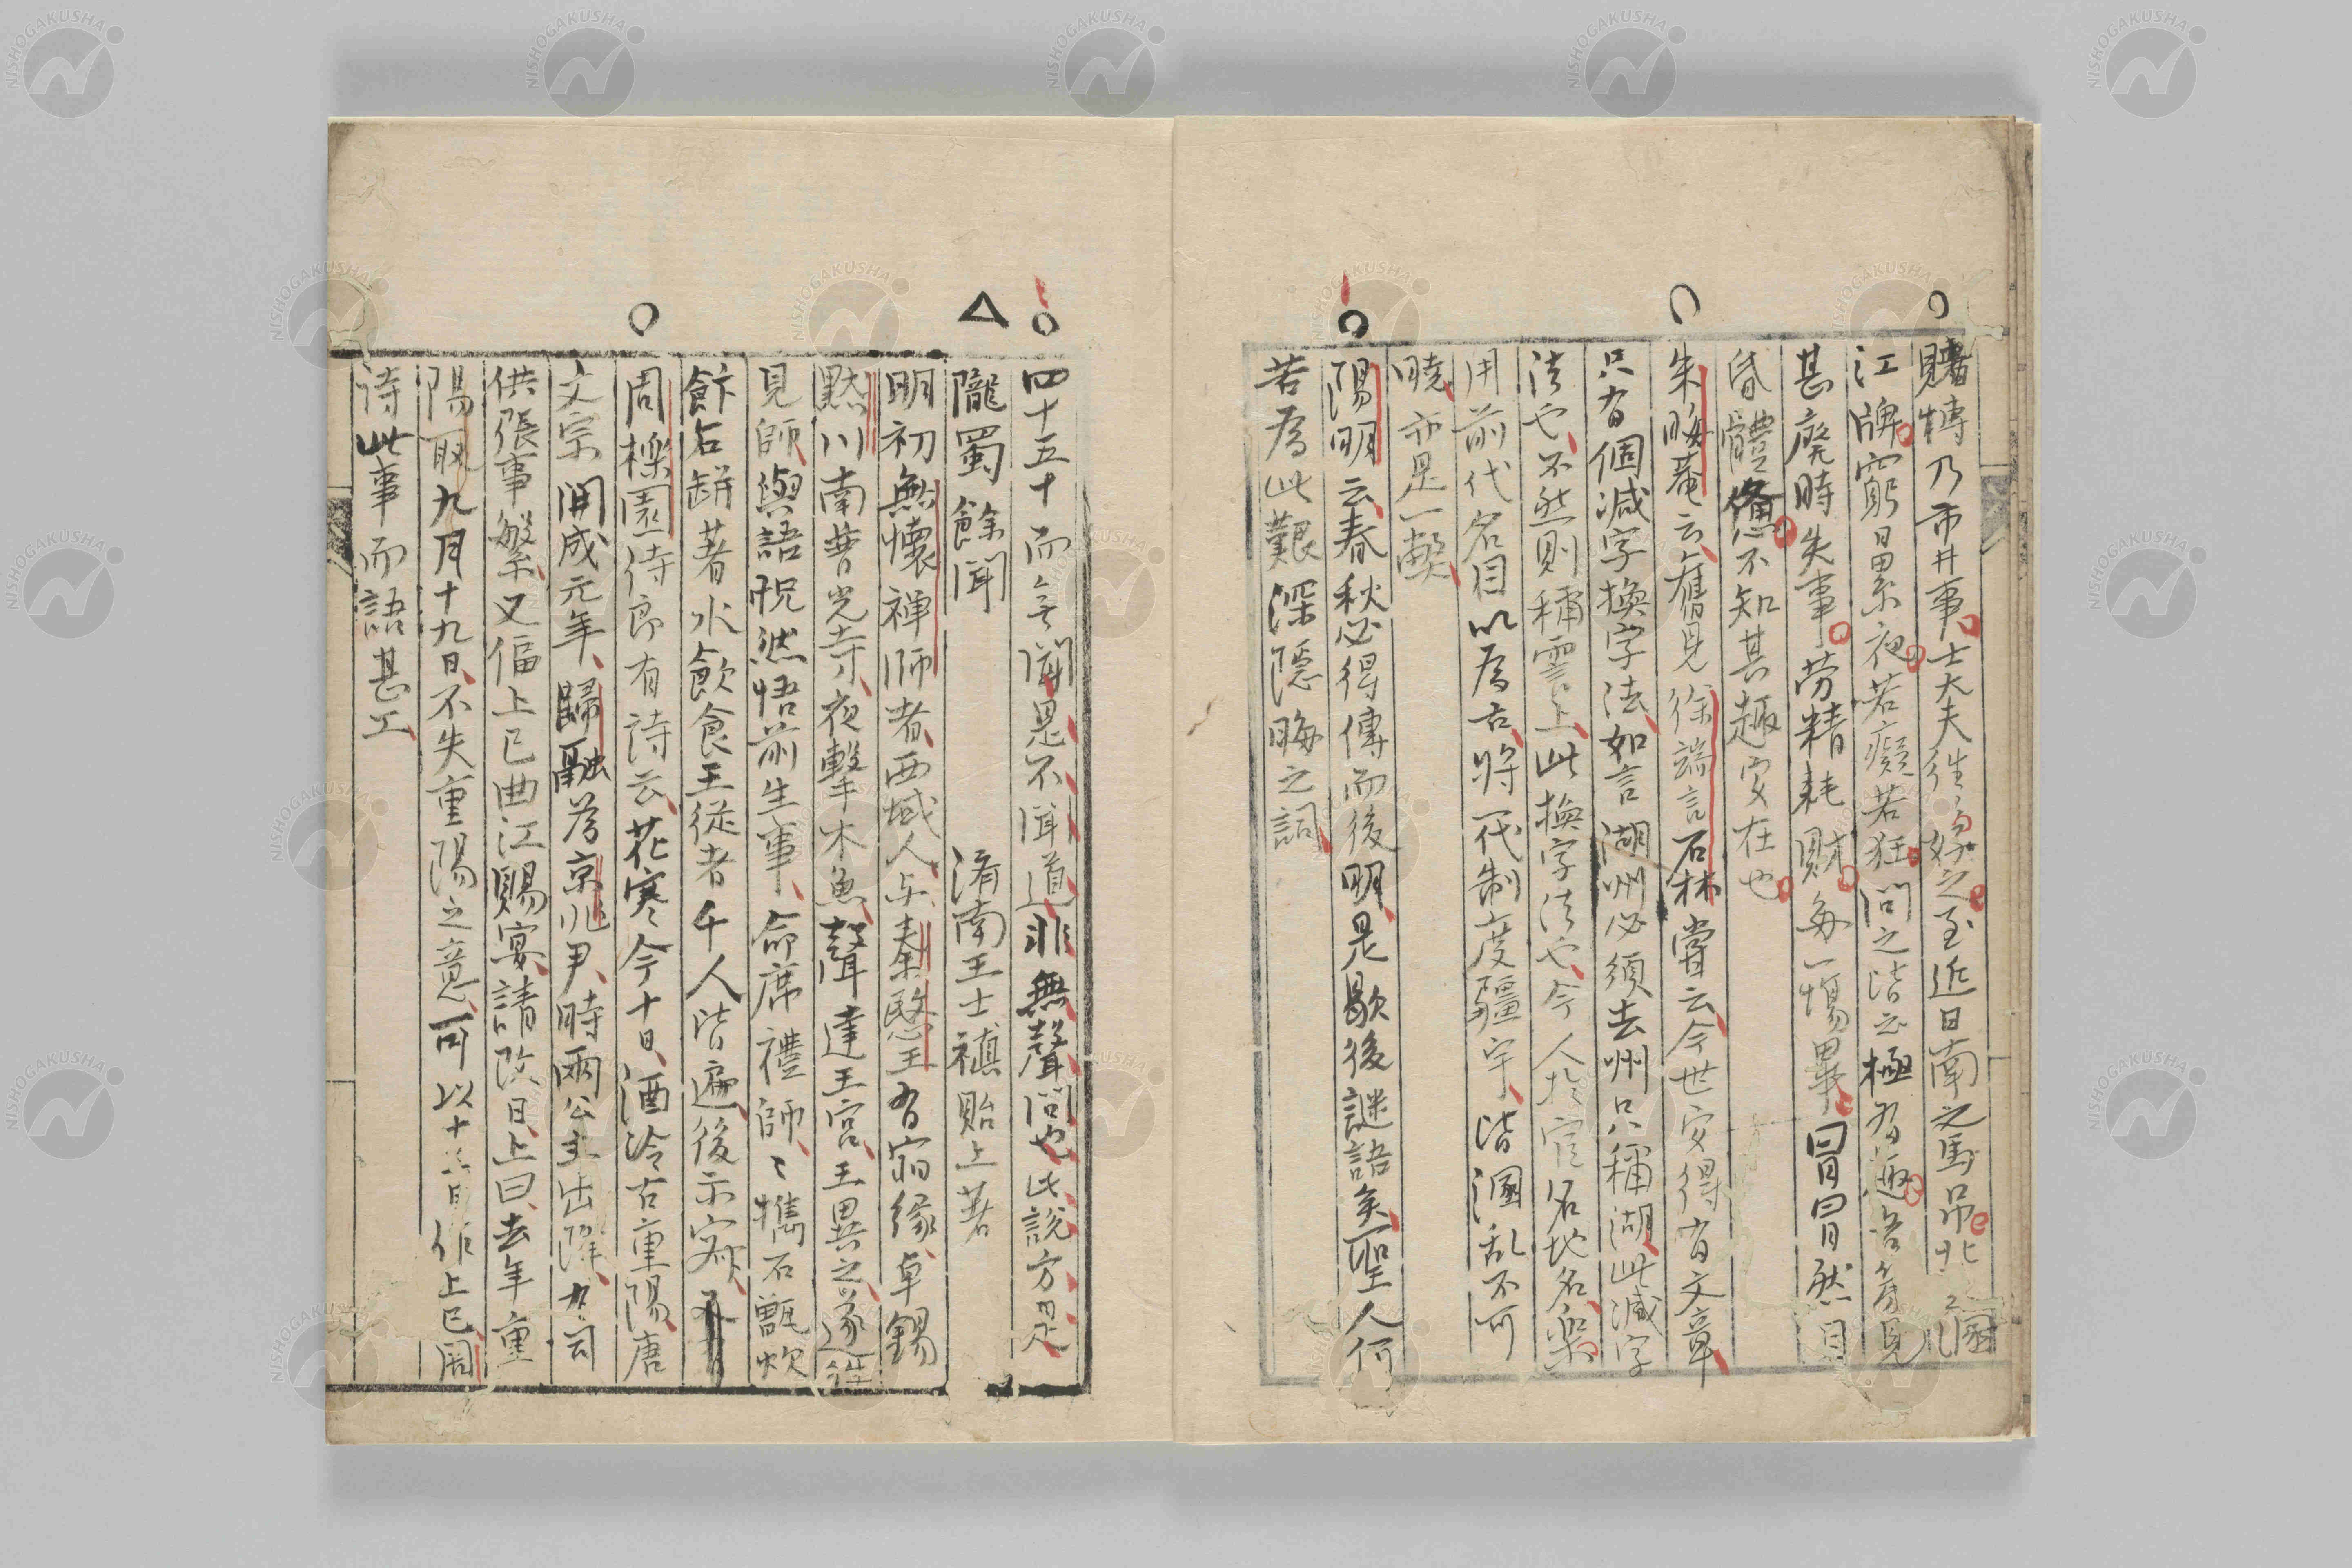 賭博乃市井事士大夫往〻好之至近日南之馬吊北之涸
江牌窮晷累夜若癡若狂問之皆云極有趣吾第見
甚廢時失事勞精耗財每一場畢冒冒然目
昏體憊不知其趣安在也
朱晦菴云舊見徐端言石林嘗云今世安得有文章
只有個減字換字法如言湖州必須去州只稱湖此減字
法也不然則稱霅上此換字法也今人於官名地名樂
用前代名目以為古將一代制度疆宇皆溷乱不可
曉亦是一弊
陽明云春秋必得傳而後明是歇後謎語矣聖人何
若為此艱深隱晦之詞
四十五十而無聞是不聞道非無聲問也此說方是
隴蜀餘聞 濟南王士禛貽上著
明初無懷禅師者西域人与秦愍王有宿緣卓錫
默川南普光寺夜擊木魚聲達王宮王異之遂往
見師與語怳然悟前生事命席禮師〻攜石甑炊
餅石缾著水飲食王從者千人皆遍後示寂
周櫟園侍郎有詩云花寒今十日酒冷古重陽唐
文宗開成元年歸融為京兆尹時兩公主出降有司
供張事繁又偪上巳曲江賜宴請改日上曰去年重
陽取九月十九日不失重陽之意可以十三日作上巳周
詩此事而語甚工